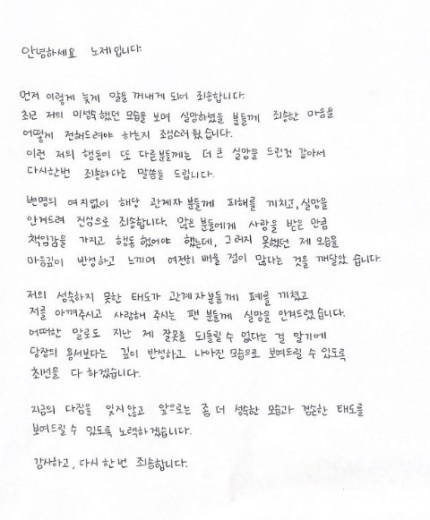 안녕하세요 노제입니다.
먼저 이렇게 늦게 말을 꺼내게 되어 죄송합니다.
최근 저의 미성숙했던 모습을 보며 실망하셨을 분들께 죄송한 마음을
어떻게 전해드려야 하는지 조심스러웠습니다.
이런 저의 행동이 또 다른분들께는 더 큰 실망을 드린것 같아서
다시한번 죄송하다는 말씀을 드립니다.
변명의 여지없이 해당 관계자 분들께 피해를 끼치고, 실망을
안겨드려 진심으로 죄송합니다. 많은 분들에게 사랑을 받은 만큼
책임감을 가지고 행동 했어야 했는데, 그러지 못했던 제 모습을
마음깊이 반성하고 느끼며 여전히 배울 점이 많다는 것을 깨달았 습니다.
저의 성숙하지 못한 태도가 관계자분들께 폐를 끼쳤고
저를 아껴주시고 사랑해 주시는 팬 분들께 실망을 안겨드렸습니다.
어떠한 말로도 지난 제 잘못을 되돌릴 수 없다는 걸 알기에
당장의 용서보다는 깊이 반성하고 나아진 모습으로 보여드릴 수 있도록
최선을 다 하겠습니다.
지금의 다짐을 잊지않고 앞으로는 좀 더 성숙한 모습과 겸손한 태도를
보여드릴 수 있도록 노력하겠습니다.
감사하고, 다시 한번 죄송합니다.